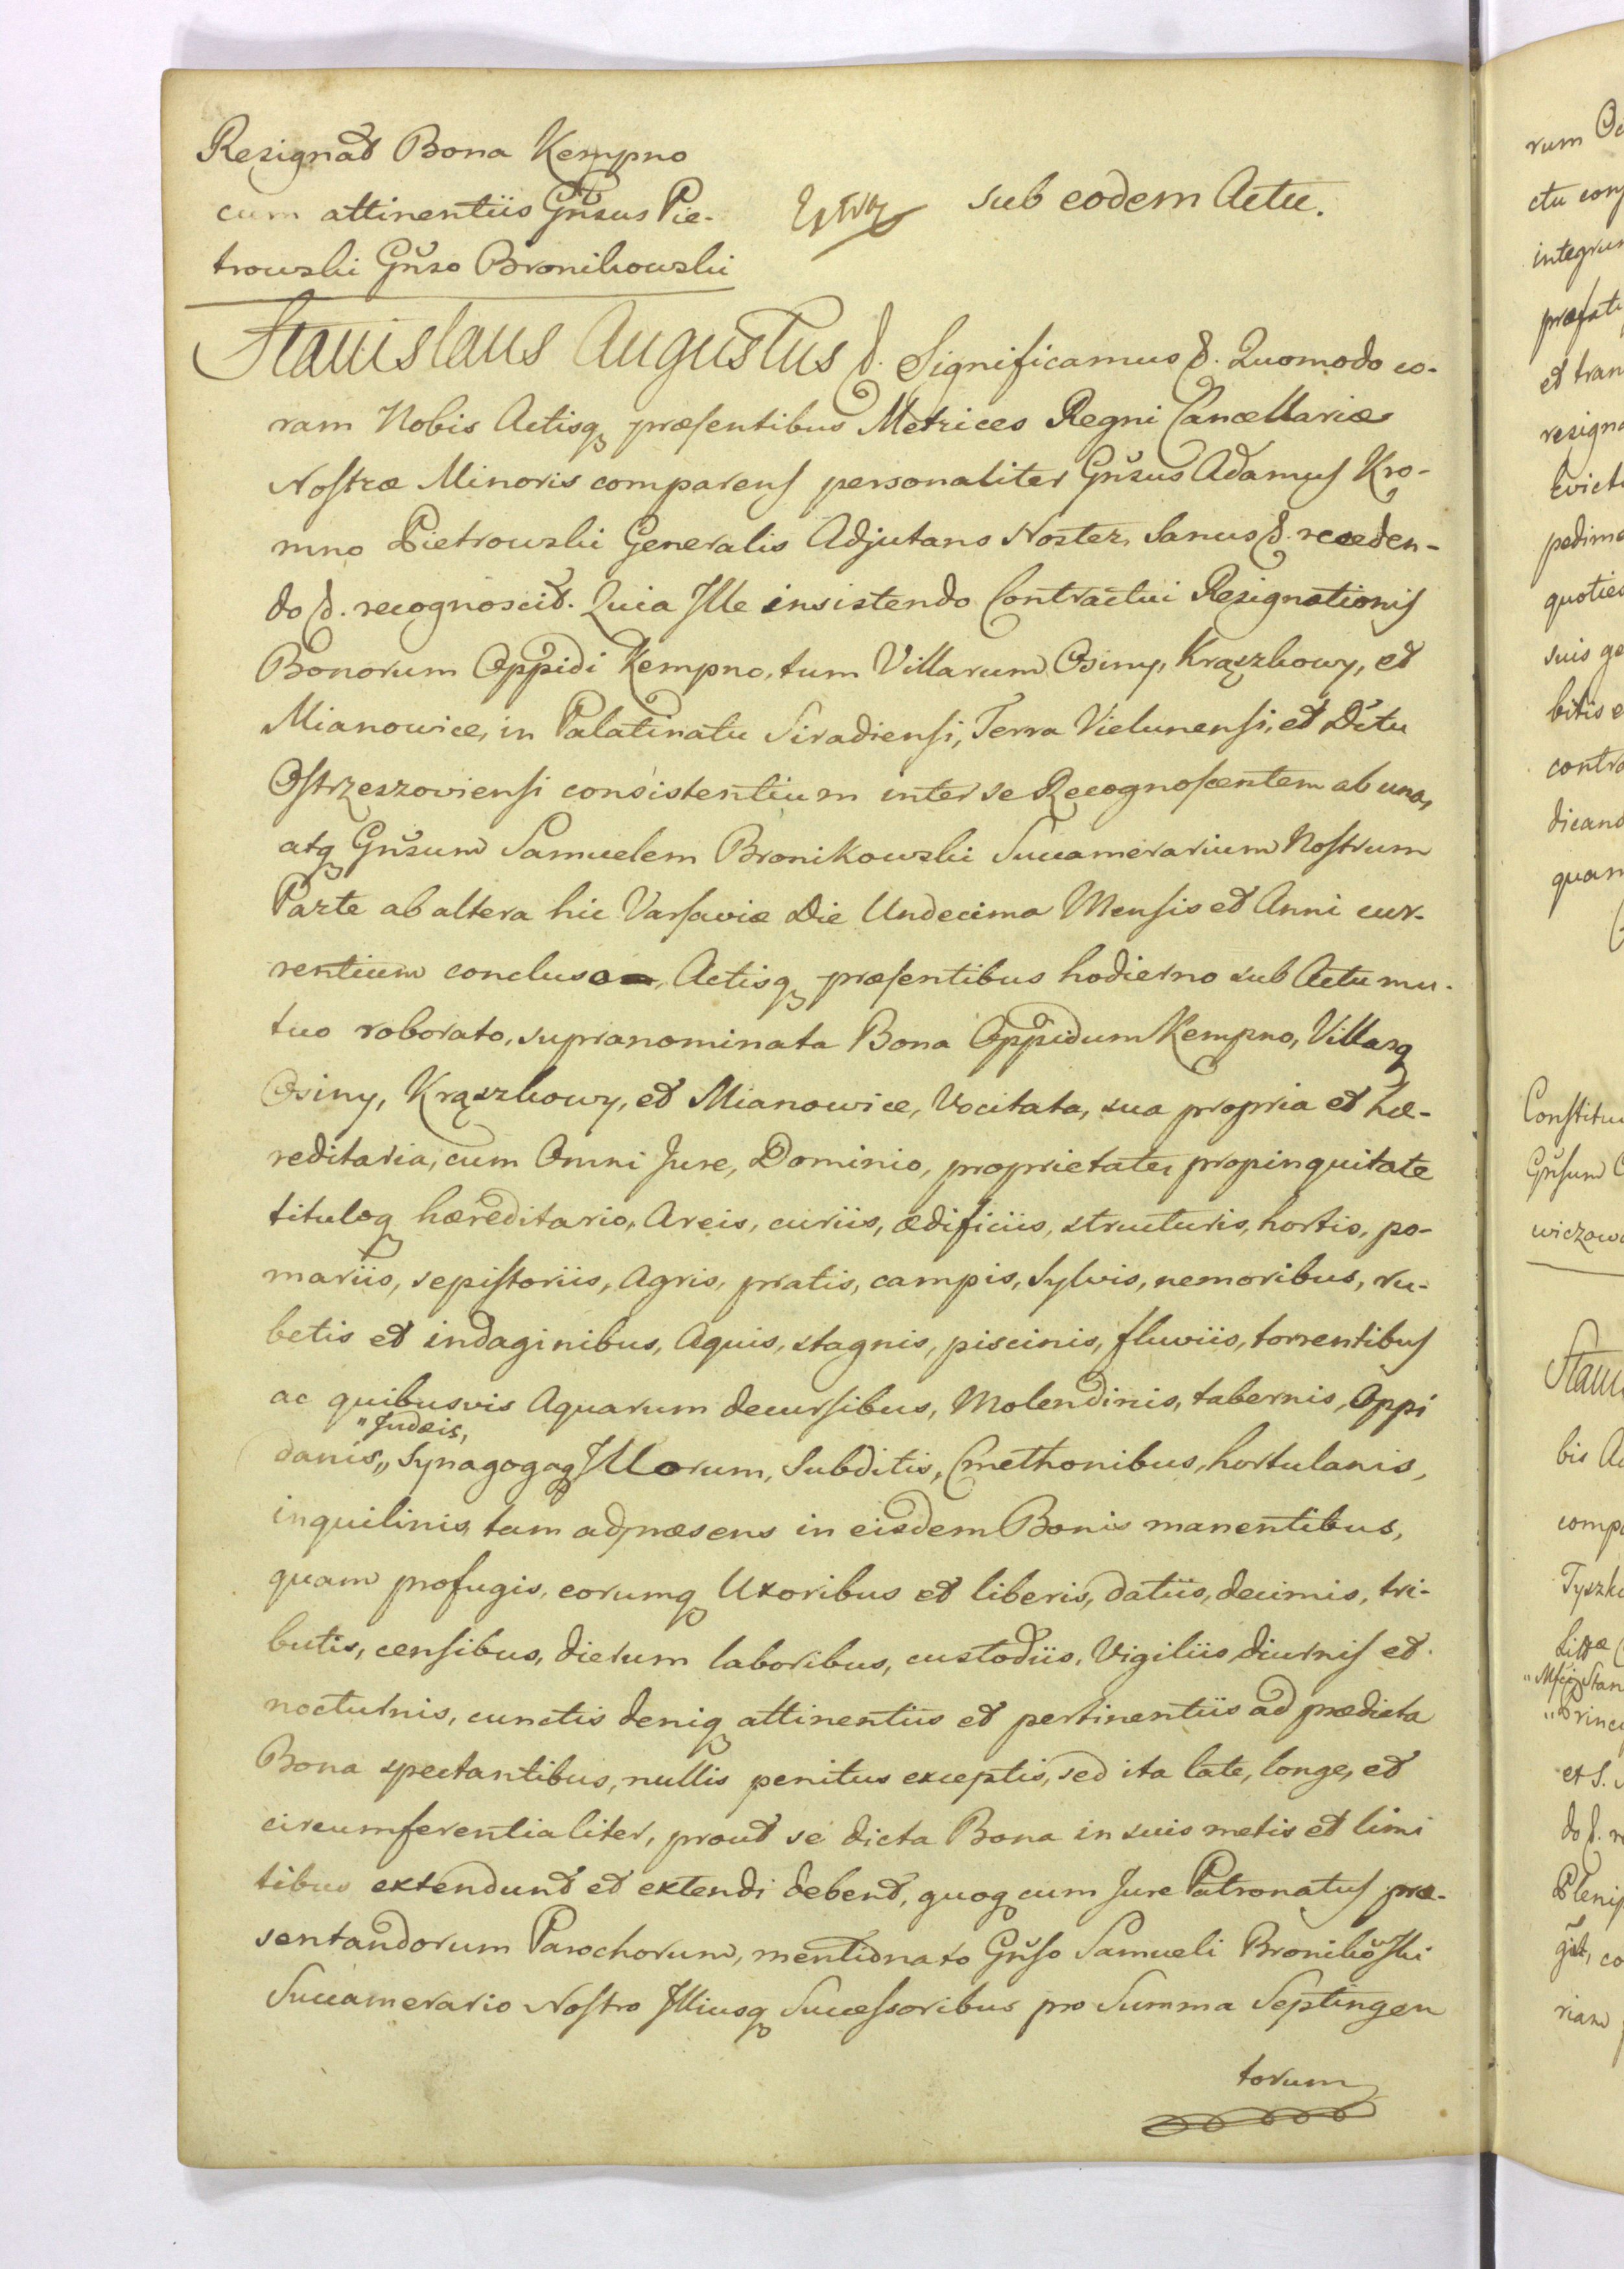 Rezignat Bona Kempno
cum attinentiis Gnsus Pie-
trowski Gnso Bronikowski
sub eodem Actu.
Stanislaus Augustus &. Significamus &. Quomodo co-
ram Nobis Actisq præsentibus Metrices Regni Cancellariæ
Nostræ Minoris comparens personaliter Gnsus Adamus Kro-
mno Pietrowski Generalis Adjutans Noster, Sanus &. receden-
do &. recognoscit. Quia Ille insistendo Contractui Resignationis
Bonorum Oppidi Kempno, tum Villarum Osiny, Krąszkowy, et
Mianowice, in Palatinatu Siradiensi, Terra Vielunensi, et Dctu
Ostrzeszoviensi consistentium inter se Recognoscentem ab una,
atq Gnsum Samuelem Bronikowski Succamerarium Nostrum
Parte ab altera hic Varsaviæ Die Undecima Mensis et Anni cur-
rentium concluso, Actisq præsentibus hodierno sub Actu mu-
tuo roborato, supranominata Bona Oppidum Kempno, Villasq
Osiny, Krąszkowy, et Mianowice, Vocitata, sua propria et hæ-
reditaria, cum Omni Jure, Dominio, proprietate, propinquitate
tituloq hæreditario, Areis, curiis, ædificiis, structuris, hortis, po-
mariis, sepistoriis, Agris, pratis, campis, Sylvis, nemoribus, ru-
betis et indaginibus, Aquis, stagnis, piscinis, fluviis, torrentibus
ac quibusvis Aquarum decursibus, Molendinis, tabernis, Oppi
"Judæis,
danis,, Synagogaq Illorum, Subditis, Cmethonibus, hortulanis,
inquilinis tam ad præsens in eisdem Bonis manentibus,
quam profugis, eorumq Uxoribus et liberis, datiis, decimis, tri-
butis, censibus, dierum laboribus, custodiis, Vigiliis diurnis et
nocturnis, cunctis deniq attinentiis et pertinentiis ad prædicta
Bona spectantibus, nullis penitus exceptis, sed ita late, longe, et
circumferentialiter, prout se dicta Bona in suis metis et limi
tibus extendunt et extendi debent, quoq cum Jure Patronatus præ-
sentandorum Parochorum, mentionato Gnso Samueli Bronikowski
Succamerario Nostro Illiusq Successoribus pro Summa Septingen
torum
rum
integrum
et tran
resigna
pedime
quoties
suis ge
bitis e
contra
dicand
quam
Constitu
Gnsum
wiczow
Stanis
bis Ac
comp
Tyszk
et S.
Pleni
riam